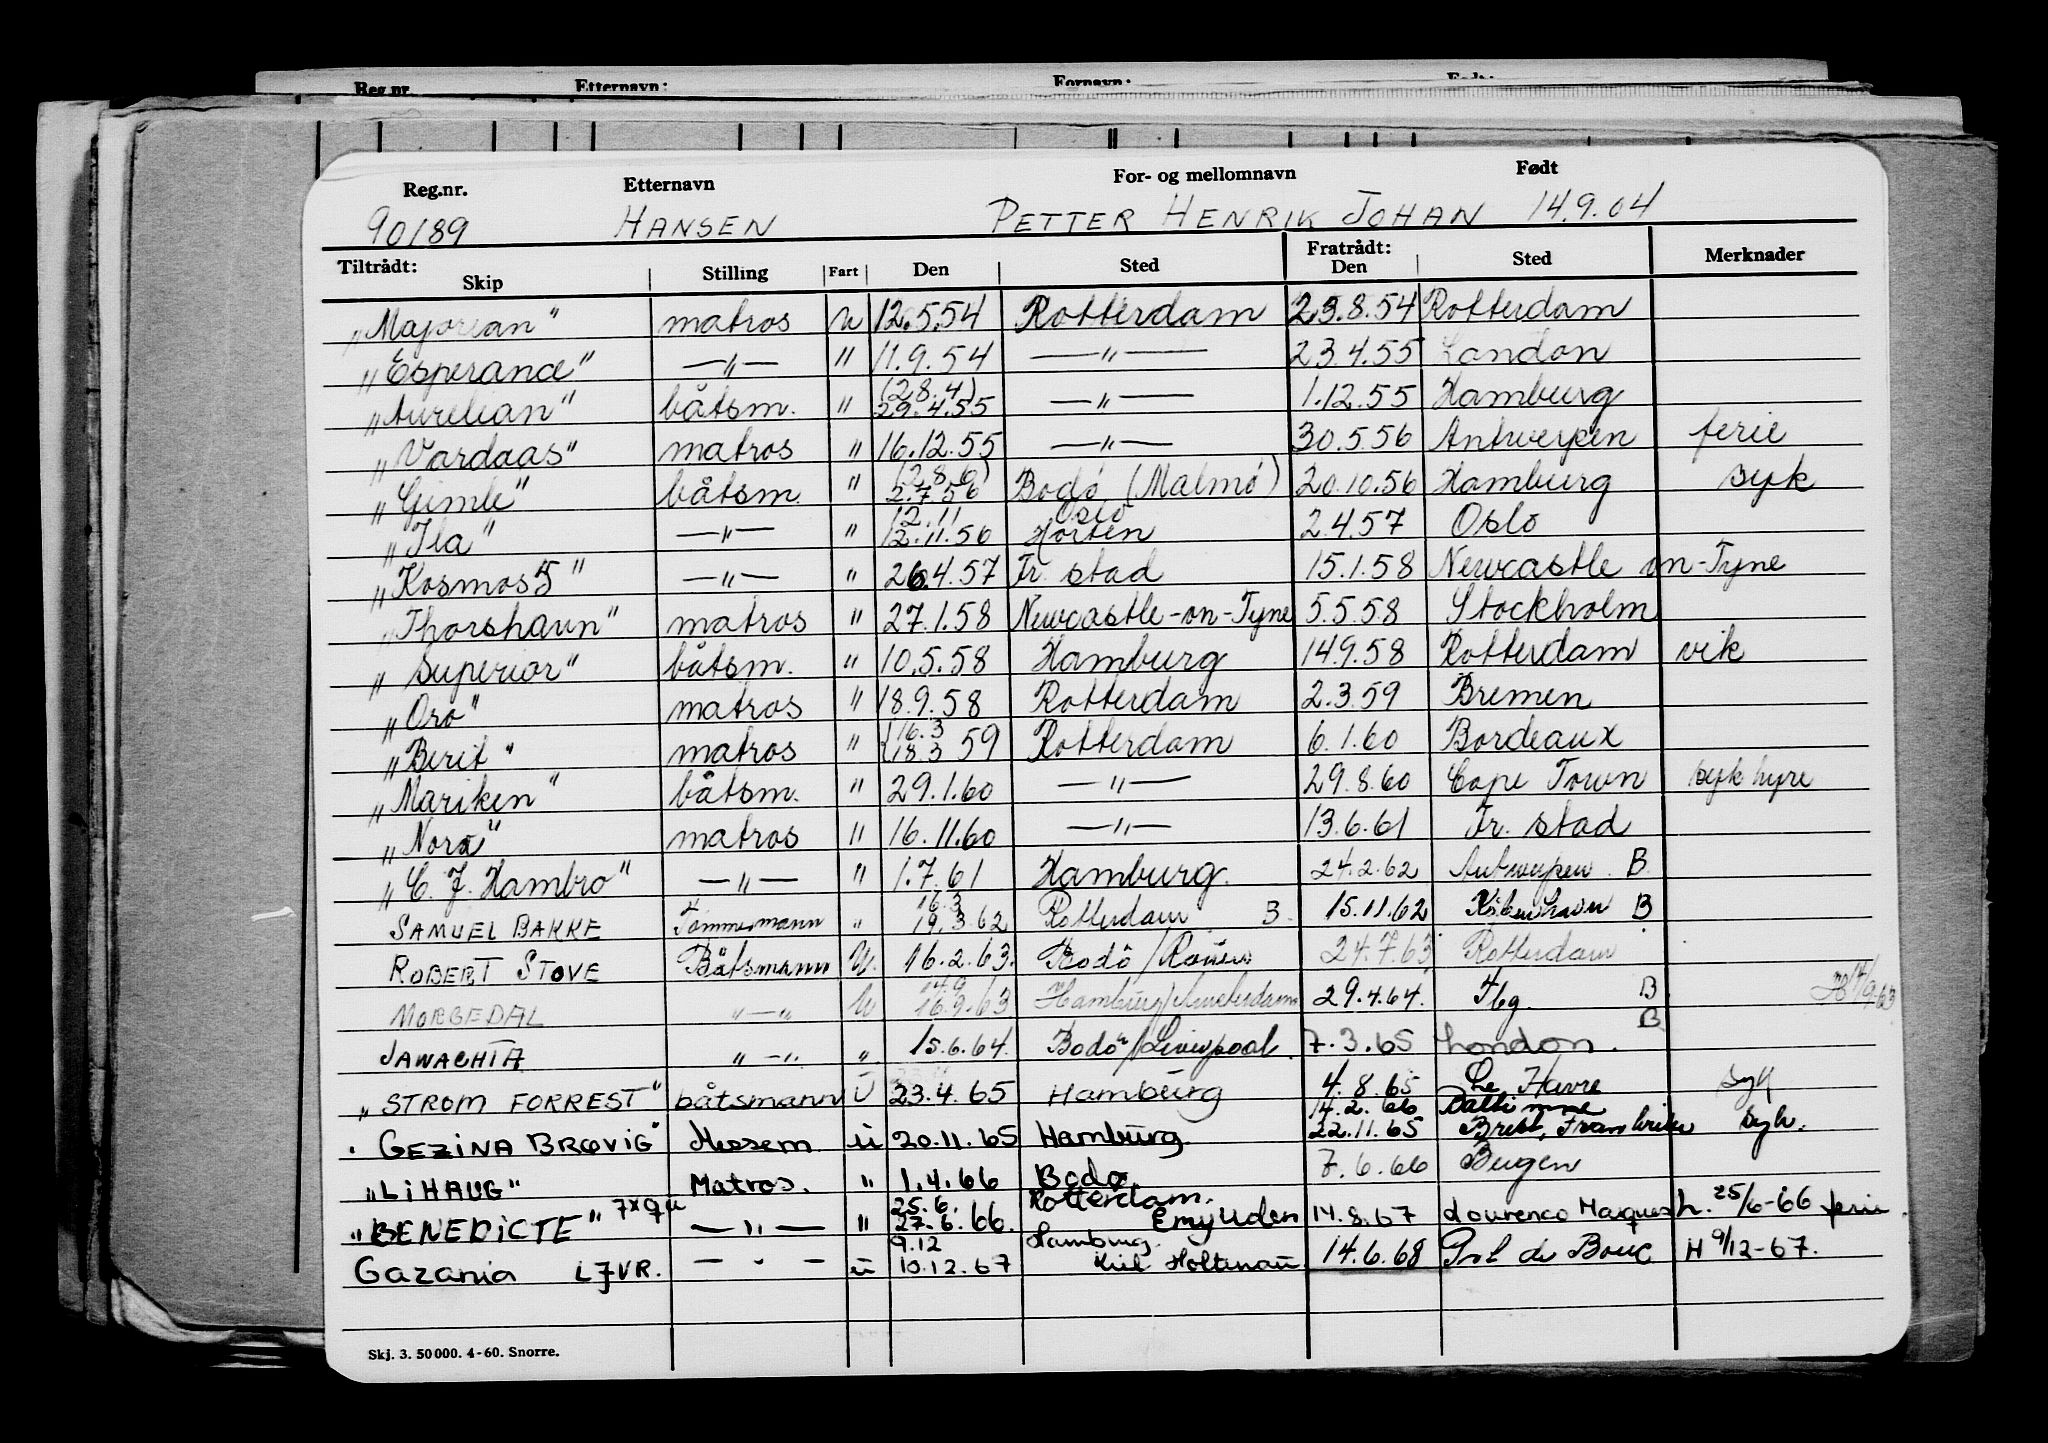 Reg.nr. Etternavn: Fornavn: Født:
Reg.nr. Etternavn For- og mellomnavn Født
90189 HANSEN PETTER HENRIK JOHAN 14.9.04
Tiltrådt: Skip Stilling Fart Den Sted Fratrådt: Den Sted Merknader
„Majorian" matros u 12.5.54 Rotterdam 23.8.54 Rotterdam
„Esperance" —„— " 11.9.54 —„— 23.4.55 London
„Aurelian" båtsm. " (28.4) 29.4.55 —„— 1.12.55 Hamburg
„Vardaas" matros " 16.12.55 —„— 30.5.56 Antwerpen ferie
„Gimle" båtsm. " (28.6) 2.7.56 Bodö (Malmö) 20.10.56 Hamburg syk
„Ila" —„— " 12.11 12.11.56 Oslo Horten 2.4.57 Oslo
„Kosmos 5" —„— " 26.4.57 Fr. stad 15.1.58 Newcastle on-Tyne
„Thorshavn" matros " 27.1.58 Newcastle-on-Tyne 5.5.58 Stockholm
„Superior" båtsm. " 10.5.58 Hamburg 14.9.58 Rotterdam vik
„Oro" matros " 18.9.58 Rotterdam 2.3.59 Bremen
„Berit" matros " 16.3 18.3 59 Rotterdam 6.1.60 Bordeaux
„Mariken" båtsm. " 29.1.60 —„— 29.8.60 Cape Town syk hyre
„Nora" matros " 16.11.60 —„— 13.6.61 Fr. stad
„C. J. Hambro" —„— " 1.7.61 Hamburg. 24.2.62 Antwerpen. B.
SAMUEL BAKKE Tømmermann " 16.3 19.3.62 Rotterdam B. 15.11.62 København B
ROBERT STOVE Båtsmann U. 16.2.63. Bodö/Rouen 24.7.63 Rotterdam
MORGEDAL "—" U 14.9 16.9.63 Hamburg/Amsterdam 29.4.64. Fbg. B
JAWACHTA "—" " 15.6.64. Bodö/Liverpool. 7.3.65 London. B
„STROM FORREST" båtsmann U 23.4.65 Hamburg 4.8.65 Le Havre syk
14.2.66 Baltimore
GEZINA BRØVIG" Messem. ü 20.11.65 Hamburg. 22.11.65 Brest, Frankrike syk.
„LIHAUG" Matros. " 1.4.66 Bodø 7.6.66 Bergen
„BENEDICTE" —„— " 25.6. 27.6.66. Rotterdam. Emjuiden 14.8.67 Lourenco Marques h. 25/6-66 ferie.
Gazania LJVR. — " — ü 9.12 10.12.67 Hamburg. Kiel Holtenau 14.6.68 Port de Bouc H 9/12-67.
Skj. 3. 50000. 4-60. Snorre.